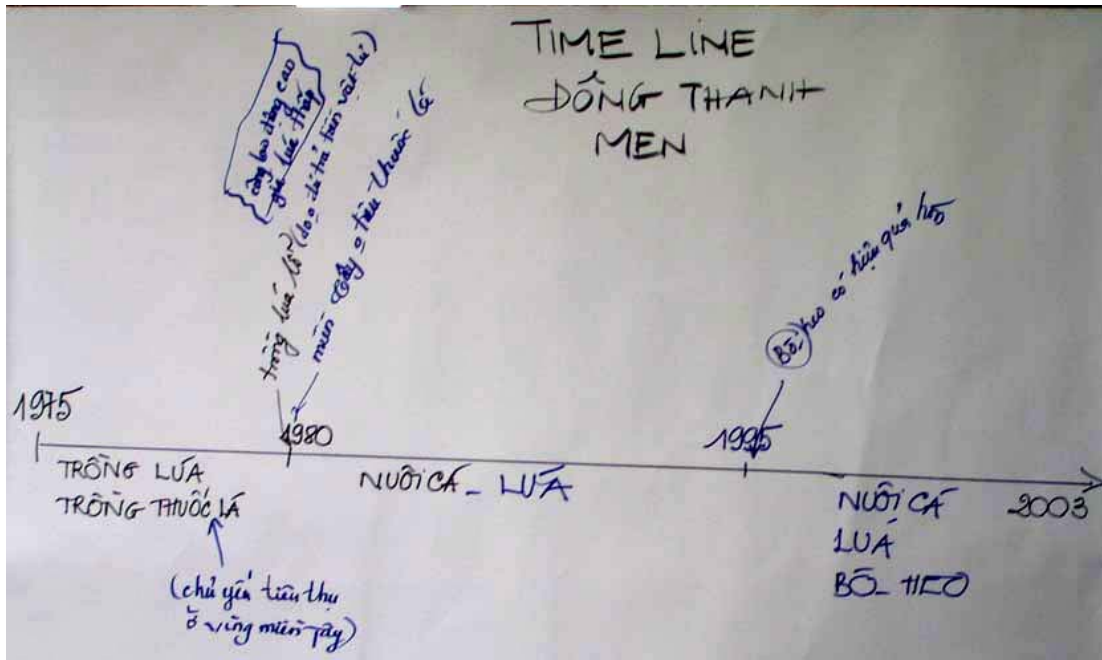 TIME LINE
ĐỒNG THANH
MEN
công lao động cao
giá lúa thấp
trồng lúa lỗ (do o đủ trả tiền vật tư)
miền Tây o tiêu thuốc lá
Bò, heo có hiệu quả hơn
1975
1980
1995
2003
TRỒNG LÚA
TRỒNG THUỐC LÁ
(chủ yếu tiêu thụ
ở vùng miền tây)
NUÔI CÁ _ LÚA
NUÔI CÁ
LUÁ
BÒ _ HEO